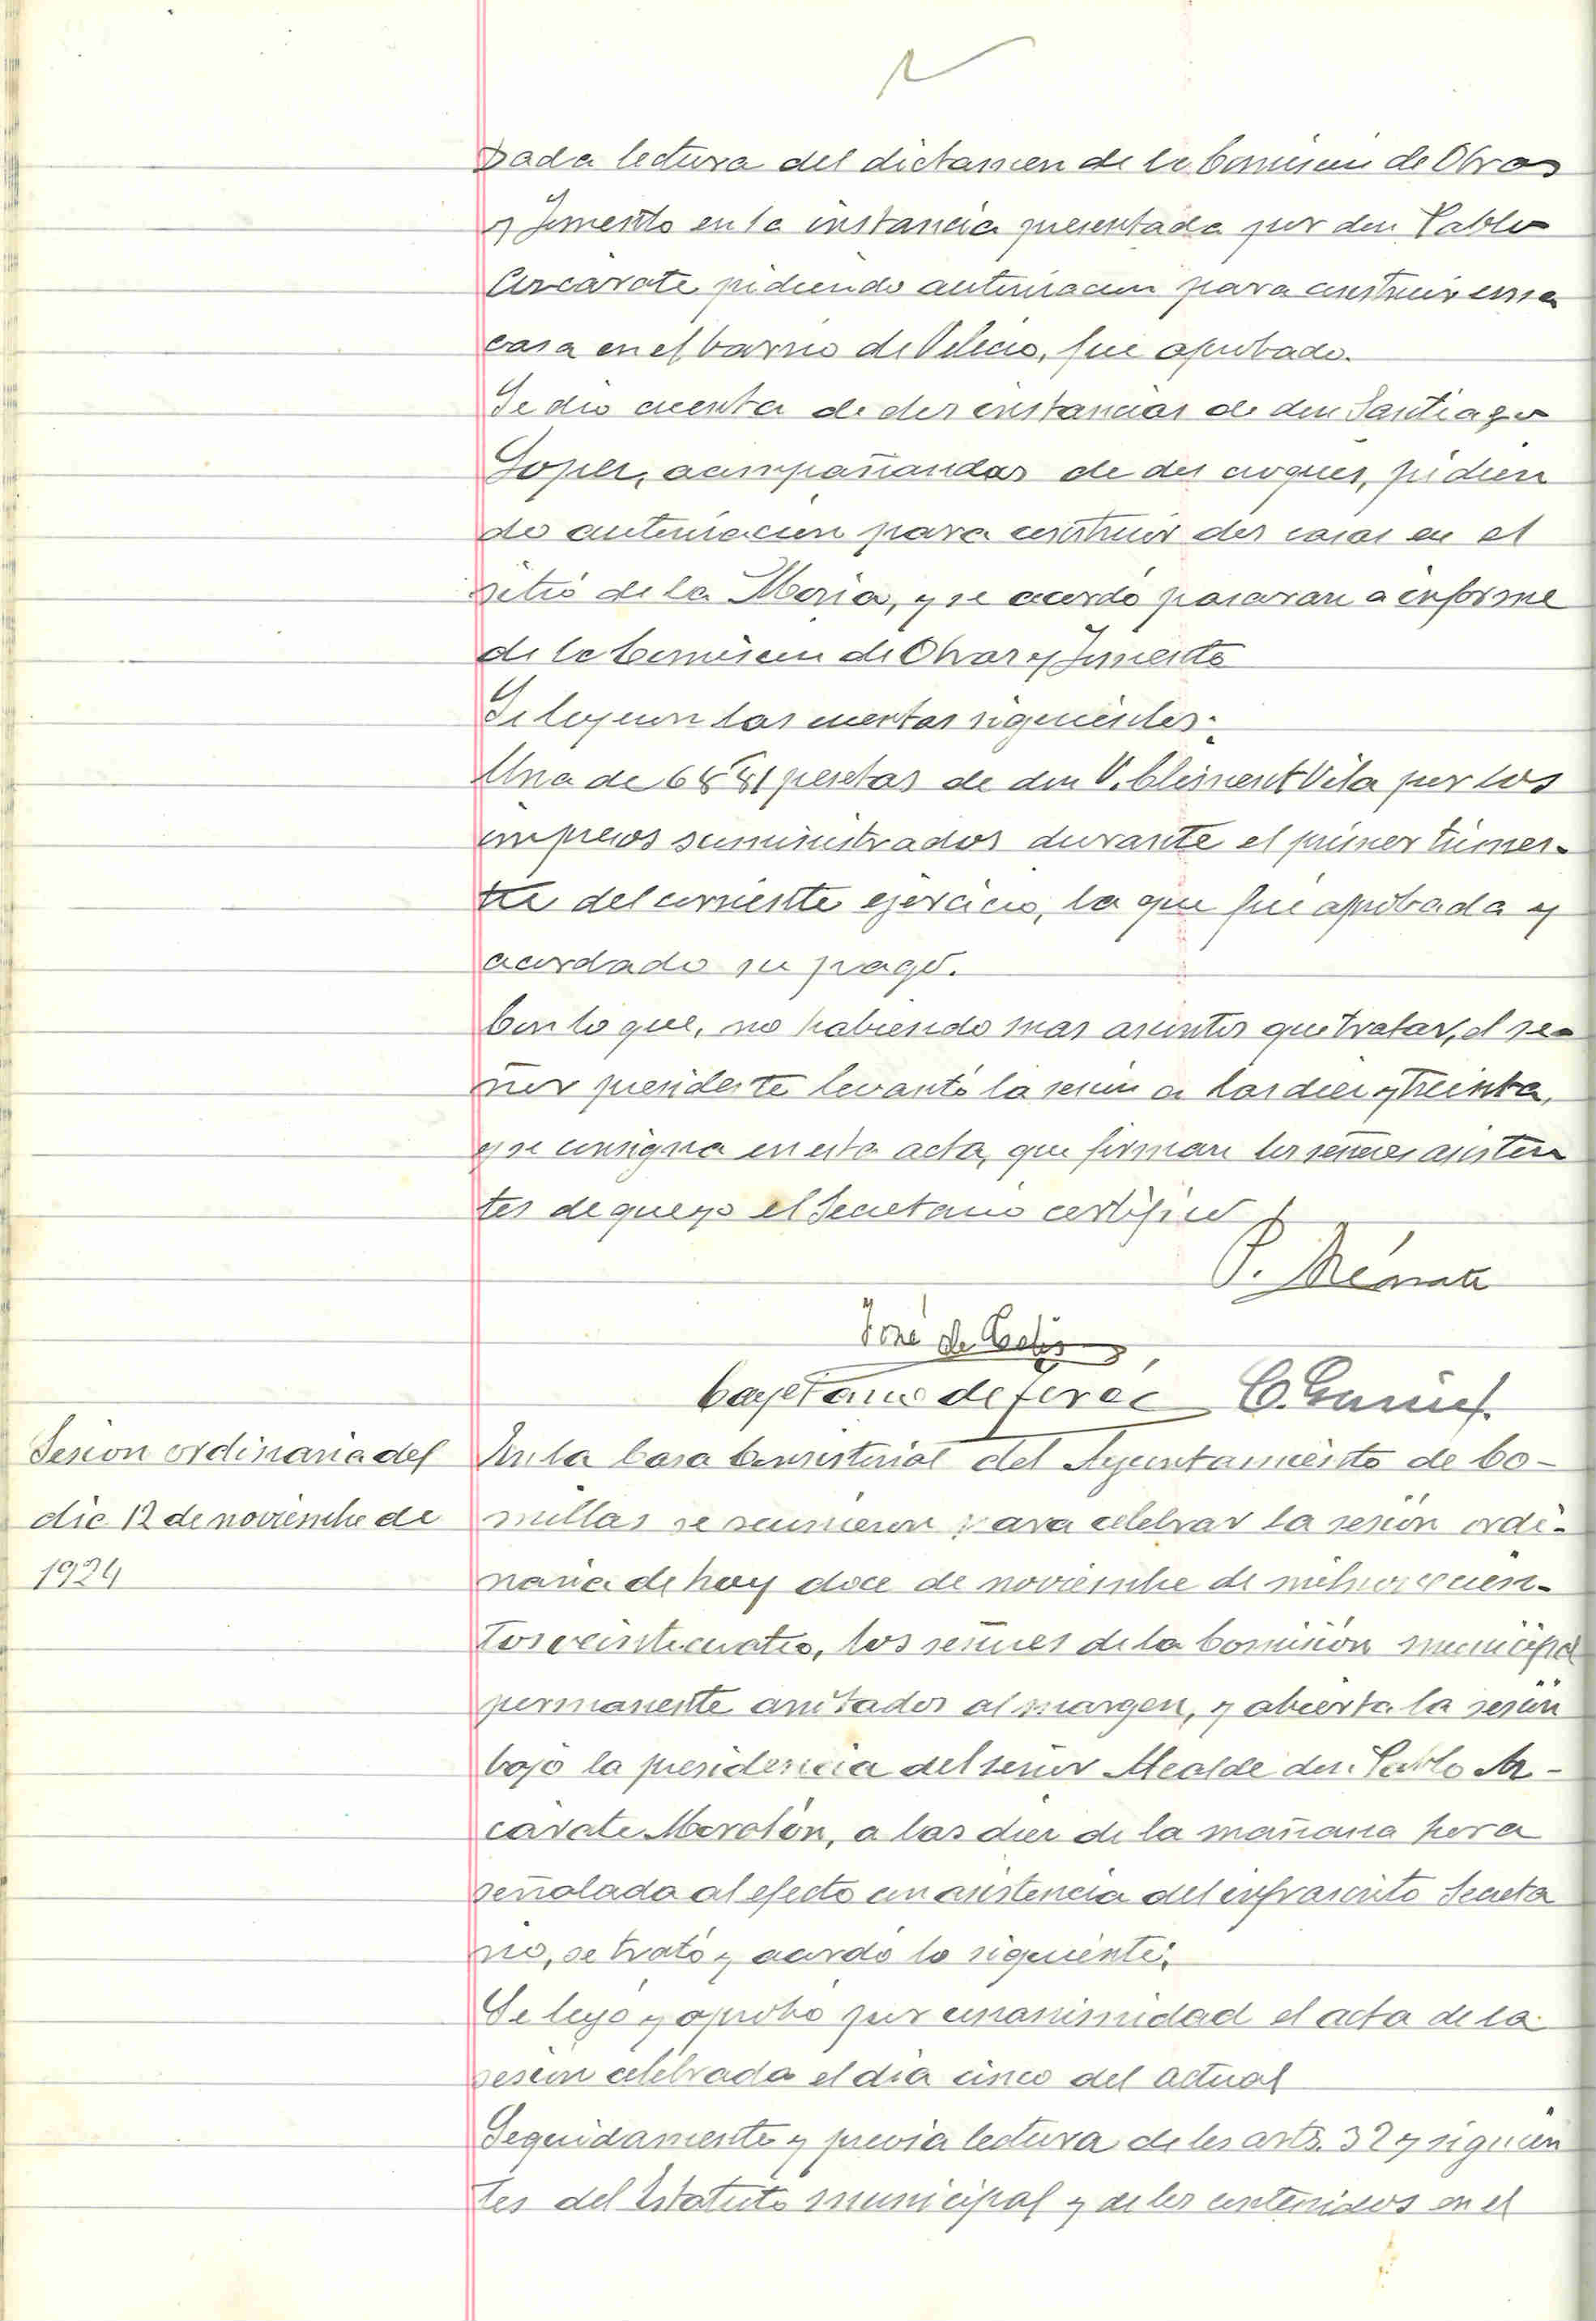 Dada lectura del dictamen de la Comision de Obras
y Fomento en la instancia presentada por don Pablo
Arcárate pidiendo autorizacion para construir una
casa en el barrio de Velecio, fue aprobado.
Se dio cuenta de dos instancias de don Santiago
Lopez, acompañandas de dos croquis, pidien
do autorizacion para construir dos casas en el
sitio de la Moria, y se acordó pasaran a informe
de la Comision de Obras y Fomento
Se leyeron las cuentas siguientes:
Una de pesetas de don V. Climent Vila por los
impresos suministrados durante el primer trimes-
tre del corriente ejercicio, la que fue aprobada y
acordado su pago.
Con lo que, no habiendo mas asuntos que tratar, el se-
ñor presidente levantó la sesion a las diez y treinta,
y se consigna en esta acta, que firman los señores asisten
tes de que yo el Secretario certifico
P.
José de Celis
Cayetano de
Sesion ordinaria del
dia 12 de noviembre de
1924
En la Casa Consistorial del Ayuntamiento de Co-
millas se reunieron para celebrar la sesión ordi-
naria de hoy doce de noviembre de mil novecien-
tos veinticuatro, los señores de la Comisión municipal
permanente anotados al margen, y abierta la sesión
bajo la presidencia del señor Alcalde don Pablo Ar-
cárate Morolón, a las diez de la mañana hora
señalada al efecto con asistencia del infrascrito Secreta
rio, se trató y acordó lo siguiente:
Se leyó y aprobó por unanimidad el acta de la
sesion celebrada el dia cinco del actual
Seguidamente y previa lectura de los arts. 32 y siguien
tes del Estatuto municipal y de los contenidos en el